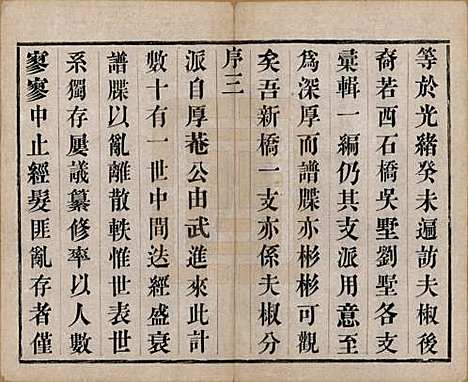 等於光緒癸未遍訪夫椒後
裔若西石橋吳墅劉墅各支
彙輯一編仍其支派用意至
為深厚而譜牒亦彬彬可觀
矣吾新橋一支亦係夫椒分
序三
派自厚菴公由武進來此計
數十有一世中間迭經盛衰
譜牒以亂離散軼惟世表世
系獨存屢議纂修率以人數
寥寥中止經髮匪亂存者僅